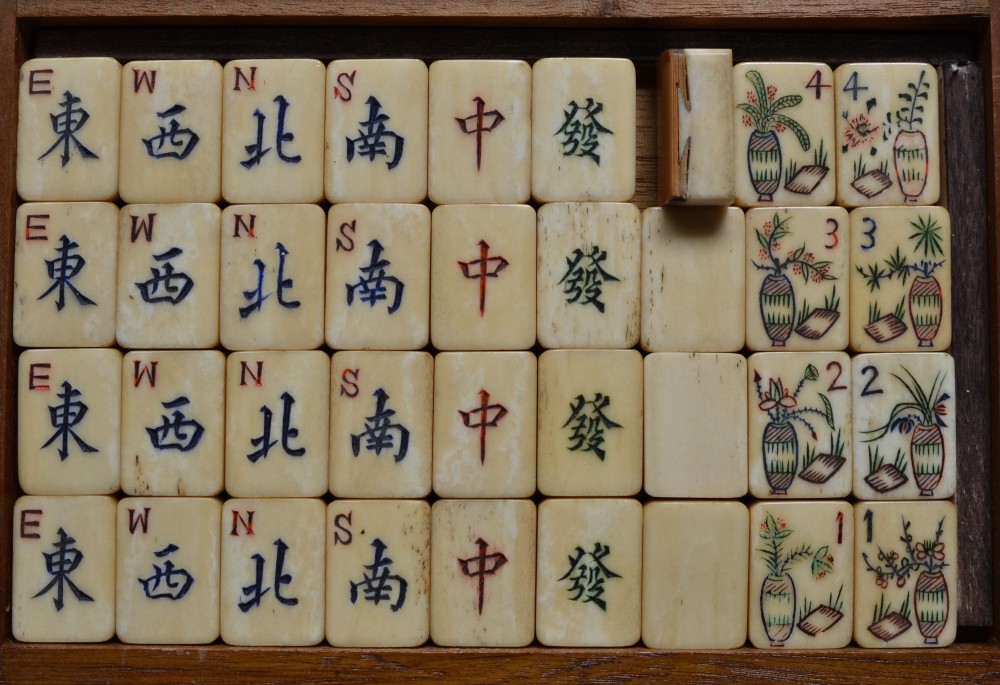 E W N S 4 4
東 西 北 南 中 發
E W N S 3 3
東 西 北 南 中 發
E W N S 2 2
東 西 北 南 中 發
E W N S 1 1
東 西 北 南 中 發